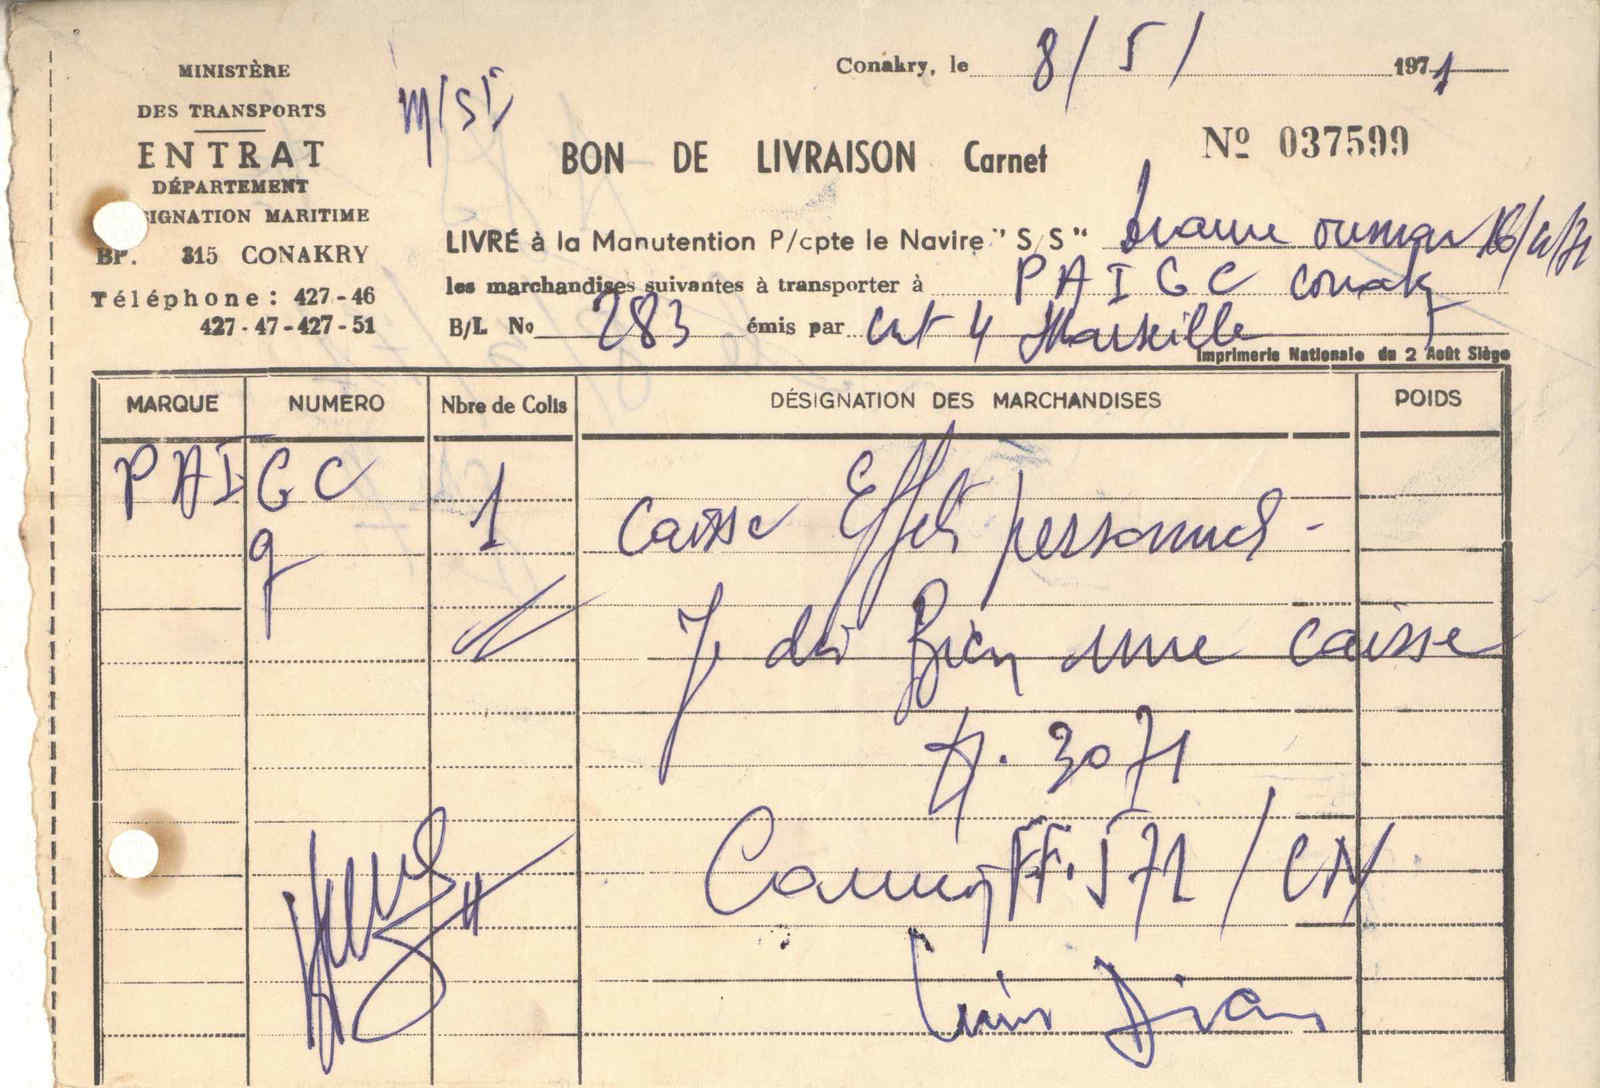 MINISTÈRE
DES TRANSPORTS
ENTRAT
DÉPARTEMENT
SIGNATION MARITIME
BP. 315 CONAKRY
Téléphone : 427-46
427-47-427-51
Conakry, le 8/5/ 1971
BON DE LIVRAISON Carnet
Nº 037599
LIVRÉ à la Manutention P/cpte le Navire "S/S"
les marchandises suivantes à transporter à PAIGC Conaky
B/L No 283 émis par Marseille
Imprimerie Nationale du 2 Août Siège
MARQUE NUMERO Nbre de Colis DÉSIGNATION DES MARCHANDISES POIDS
PAIGC 1 Caisse Effets personnels -
9
Bien une caisse
3071
FF. 571/CN